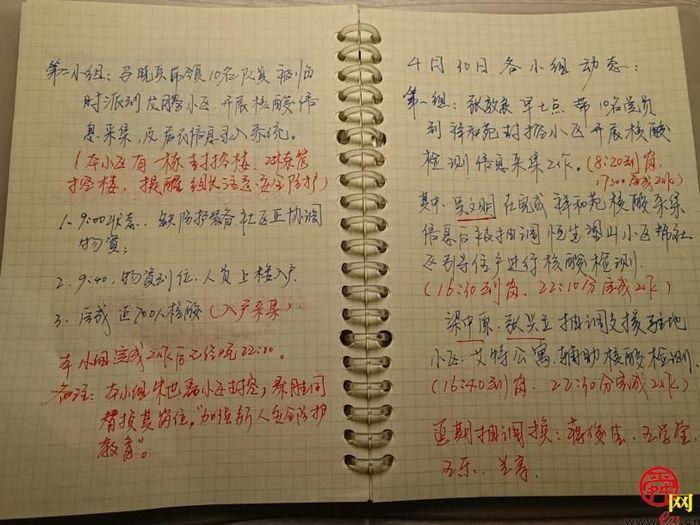 第二小组：吕晓兵带领10名队员被临
时派到发腾小区开展核酸信
息采集，及居民信息录入系统。
（本小区有一栋封控楼，2栋管
控楼，提醒组长注意安全防护）
1. 9:00状态：缺防护装备社区正协调
物资；
2. 9:40，物资到位，人员上楼入户
3. 完成近700人核酸（入户采集）
本小组完成工作后已经晚22:10。
备注：本小组小区封控，
替换其岗位，"加强新人安全防护
教育"。
4月30日各小组动态：
第一组：张教亲早七点带10名党员
到祥和苑封控小区开展核酸
检测信息采集工作。（8:20到岗，
17:00完成工作）
其中：吴文明在完成祥和苑核酸采集
信息后被抽调恒生望山小区帮社
区到导住户进行核酸检测。
（16:30到岗，22:10分完成工作）
梁中原、张兴亚抽调支援驻地
小区艾特公寓，辅助核酸检测
（16:40到岗，22:30分完成工作）
近期抽调换：蒋俊生、王学宝
王乐、
舜
网